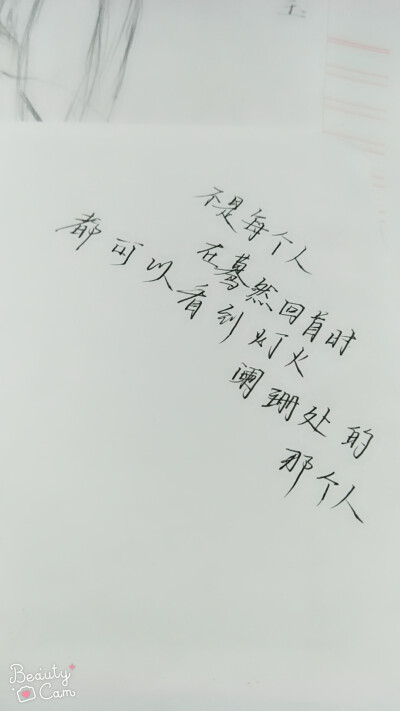 不是每个人
在蓦然回首时
都可以看到灯火
阑珊处的
那个人
Beauty
Cam